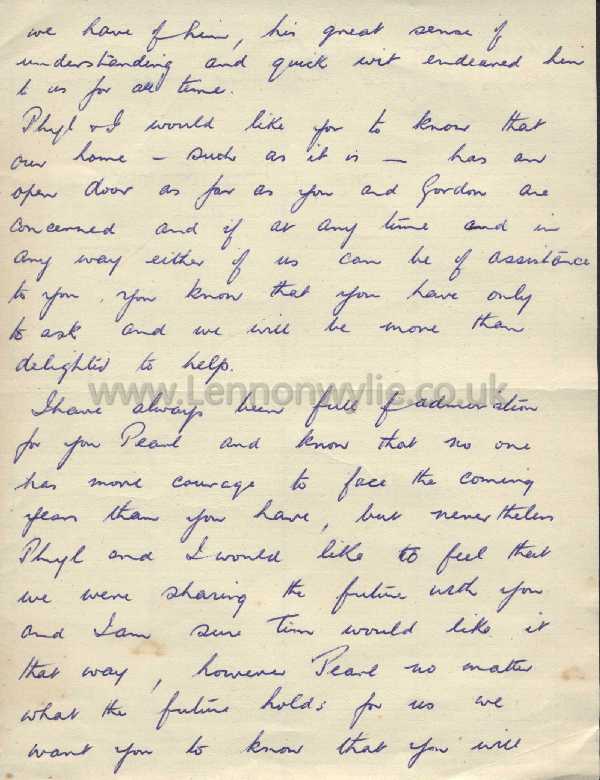 we have of him, his great sense of
understanding and quick wit endeared him
to us for all time.
Phyl & I would like you to know that
our home – such as it is – has an
open door as far as you and Gordon are
concerned and if at any time and in
any way either of us can be of assistance
to you, you know that you have only
to ask and we will be more than
delighted to help.
www.Lennonwylie.co.uk
I have always been full of admiration
for you Pearl and know that no one
has more courage to face the coming
years than you have, but nevertheless
Phyl and I would like to feel that
we were sharing the future with you
and I am sure Tim would like it
that way, however Pearl no matter
what the future holds for us we
want you to know that you will